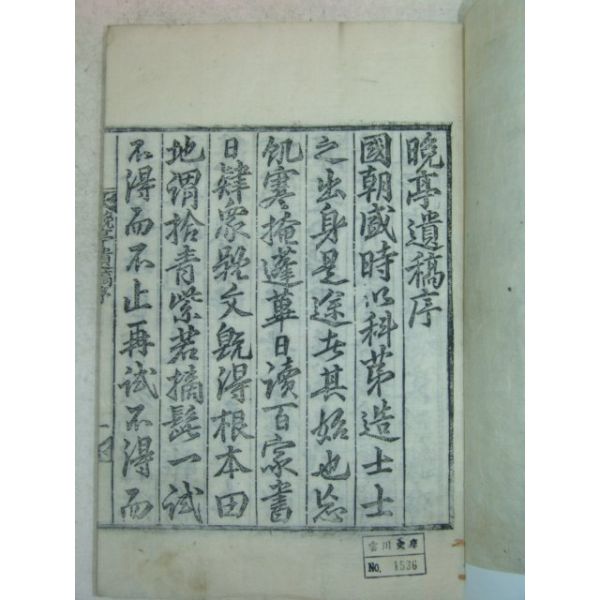 晩亭遺稿序
國朝盛時以科第造士士
之出身是途者其始也忘
飢寒掩蓬蓽日讀百家書
日肄衆體文旣得根本田
地謂拾青紫若摘髭一試
不得而不止再試不得而
晩亭遺稿序
一
No. 1536